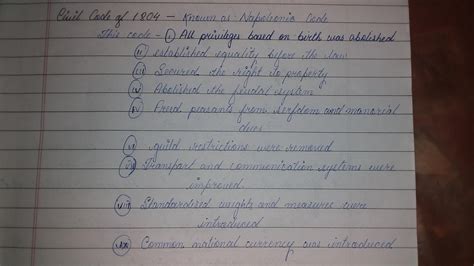 Civil Code of 1804 - Known as Napoleonic Code
This code - (i) All privilege based on birth was abolished
(ii) established equality before the law
(iii) Secured the right to property
(iv) Abolished the feudal system
(v) Freed peasants from serfdom and manorial
dues
(vi) guild restrictions were removed
(vii) Transport and communication systems were
improved
(viii) Standardised weights and measures were
introduced
(ix) Common national currency was introduced